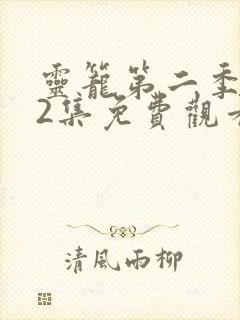 靈籠第二季
2集免費觀看
清風雨柳